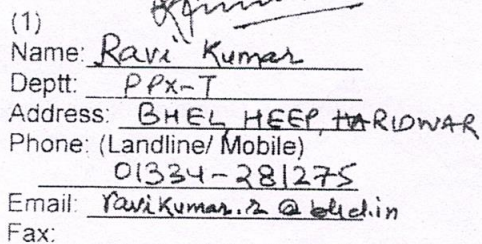 (1)
Name: Ravi Kumar
Deptt: PPX-T
Address: BHEL, HEEP, HARIDWAR
Phone: (Landline/ Mobile)
01334-281275
Email: ravikumar.r @ bhel.in
Fax: